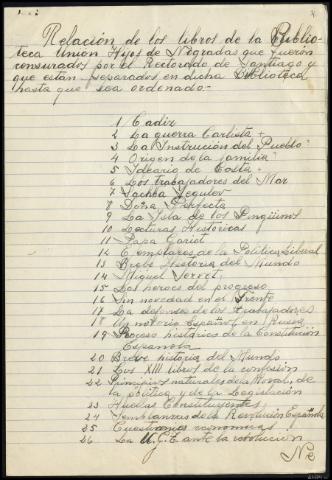 Relación de los libros de la Biblio-
teca Union Hijos de Negradas que fueron
censurados por el Rectorado de Santiago y
que están separados en dicha Biblioteca
hasta que sea ordenado-
1 Cadiz
2 La guerra Carlista
3 La Instrución del Pueblo
4 Origen de la familia
5 Ideario de Costa
6 Los trabajadores del Mar
7
8 Doña Perfecta
9 La Isla de los Pingüins
10 Lecturas Históricas
11 Papa Goriot
12 Ejemplares de la Politica Liberal
13 Brebe Historia del Mundo
14 Miguel Servet
15 Los heroes del progreso
16 Sin novedad en el Frente
17 La defensa de los trabajadores
18 Un notario Español en Rusia
19 Proceso histórico de la Constitución
Española
20 Brebe historia del Mundo
21 Los XIII libros de la confusión
22 Principios naturales de la Moral, de
la politica y de la Legislación
23 Huelas Constituyentes
24 Semblanzas de la Revolución Española
25 Cuestiones economicas
26 La U.G.E ante la revolucion